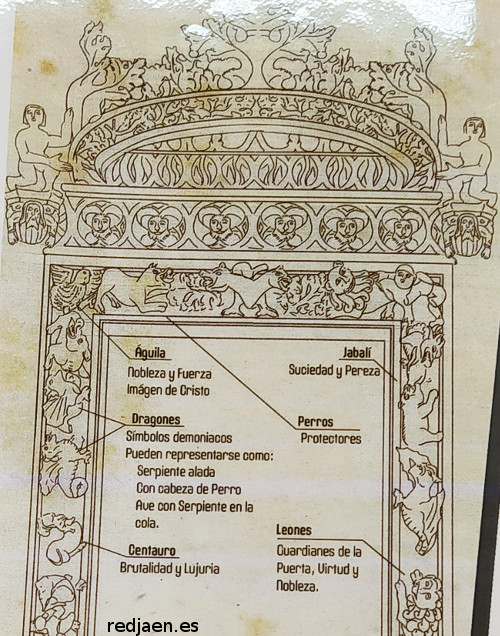 Águila
Nobleza y Fuerza
Imágen de Cristo
Jabalí
Suciedad y Pereza
Dragones
Símbolos demoniacos
Pueden representarse como:
Serpiente alada
Con cabeza de Perro
Ave con Serpiente en la
cola.
Perros
Protectores
Centauro
Brutalidad y Lujuria
Leones
Guardianes de la
Puerta, Virtud y
Nobleza.
redjaen.es